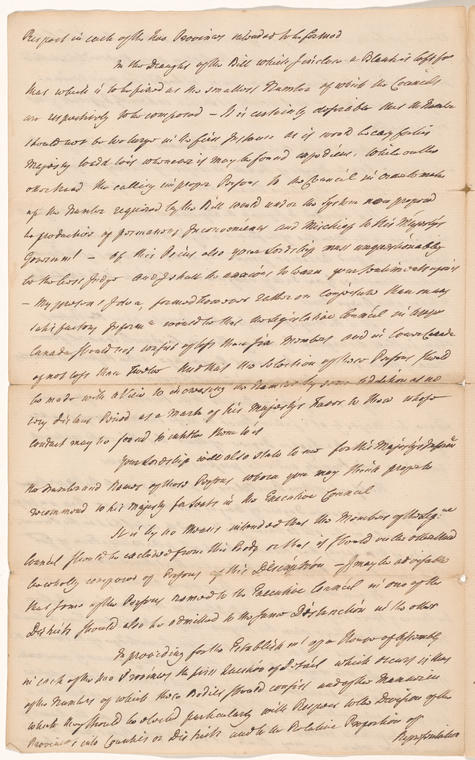 Respect in each of the two Provinces intended to be formed
In the Draught of the Bill which I inclose a Blank is left for
that which is to be fixed as the smallest Number of which the Councils
are respectively to be composed – It is certainly desirable that the Number
should not be too large in the first Instance as it will be easy for his
Majesty to add to it whenever it may be found expedient, While on the
other hand the calling improper Persons to the Council in order to make
up the Number required by the Bill would under the System now proposed
be productive of permanent Inconvenience and Mischief to His Majesty's
Government – of this Point also your Lordship must unquestionably
be the best Judge and I shall be anxious to learn your Sentiments upon it
– My present Idea, formed however rather on conjecture than on any
satisfactory Inform would be that the Legislative Council in Upper
Canada should not consist of less than six Members and in Lower Canada
of not less than Twelve And that the Selection of these Persons should
be made with a View to increasing the Number by some addition at no
very distant Period as a mark of his Majesty's Favor to those whose
conduct may be found to intitle them to it
Your Lordship will also state to me for His Majesty's Inform
the Number and Names of those Persons whom you may think proper to
recommend to his Majesty for Seats in the Executive Council
It is by no Means intended that the Members of the Leg
Council should be excluded from this Body or that it should on the other Hand
be wholly composed of Persons of this Description – It may be adviseable
that some of the Persons named to the Executive Council in one of the
Districts should also be admitted to the same Distinction in the other
In providing for the Establishmt of a House of Assembly
in each of the two Provinces the first Question of Detail which occurs is that
of the Numbers of which those Bodies should consist and of the Manner in
which they should be elected particularly with Respect to the Division of the
Provinces into Counties or Districts and to the Relative Proportion of
Representation